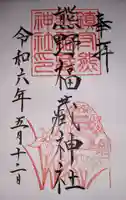 奉拝
熊野福藏神社
令和六年五月十一日